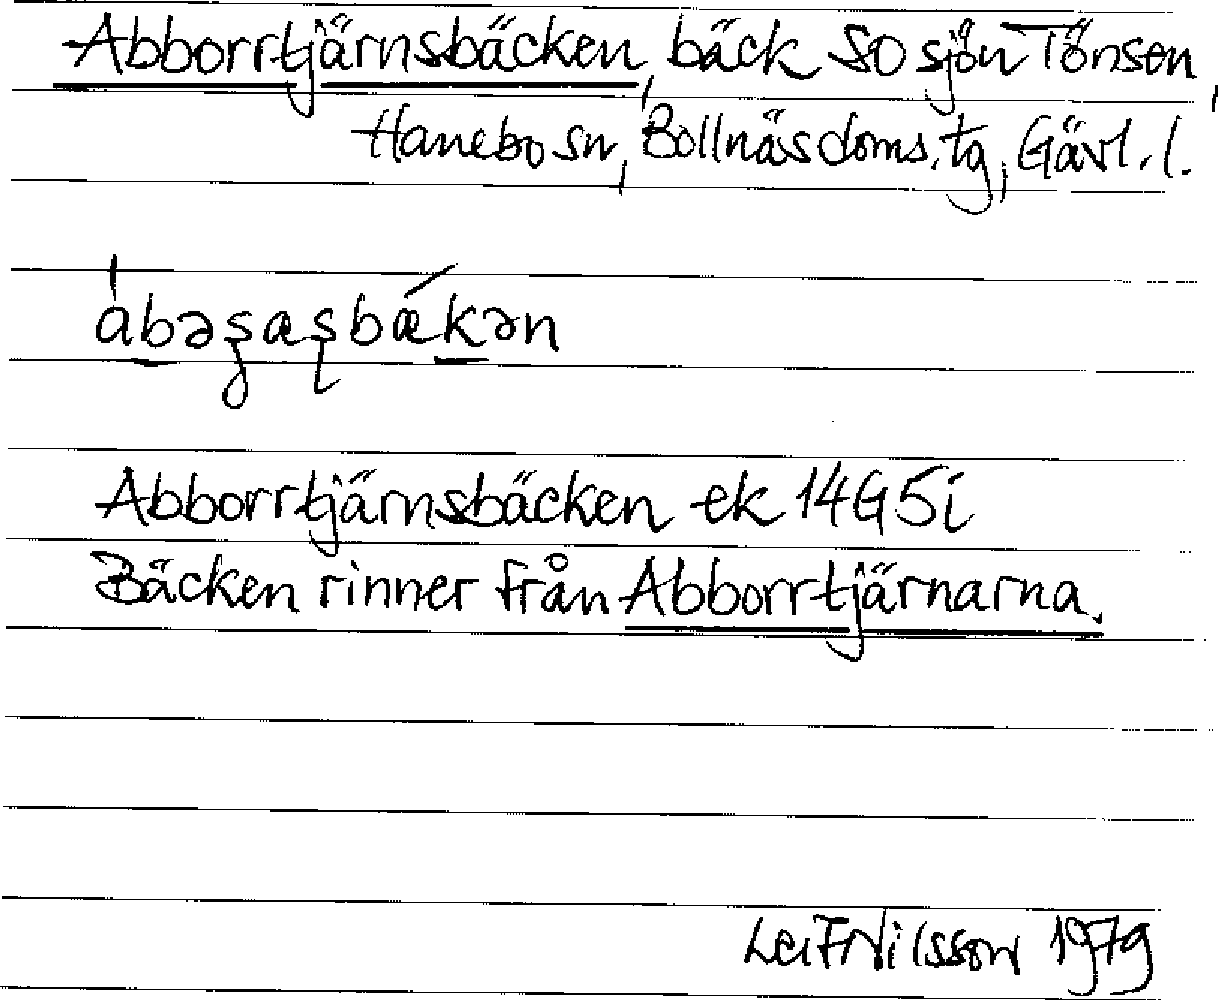 Abborrtjärnsbäcken, bäck SO sjön Tönsen,
Hanebo sn, Bollnäs doms. tg, Gävl. l.
ábəʂæʂbǽkən
Abborrtjärnsbäcken ek 14G5i
Bäcken rinner från Abborrtjärnarna.
Leif Nilsson 1979